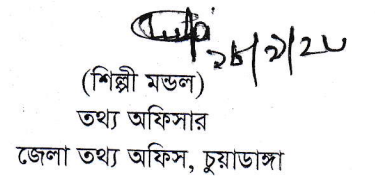 ২৮/৯/২৫
(শিল্পী মন্ডল)
তথ্য অফিসার
জেলা তথ্য অফিস, চুয়াডাঙ্গা